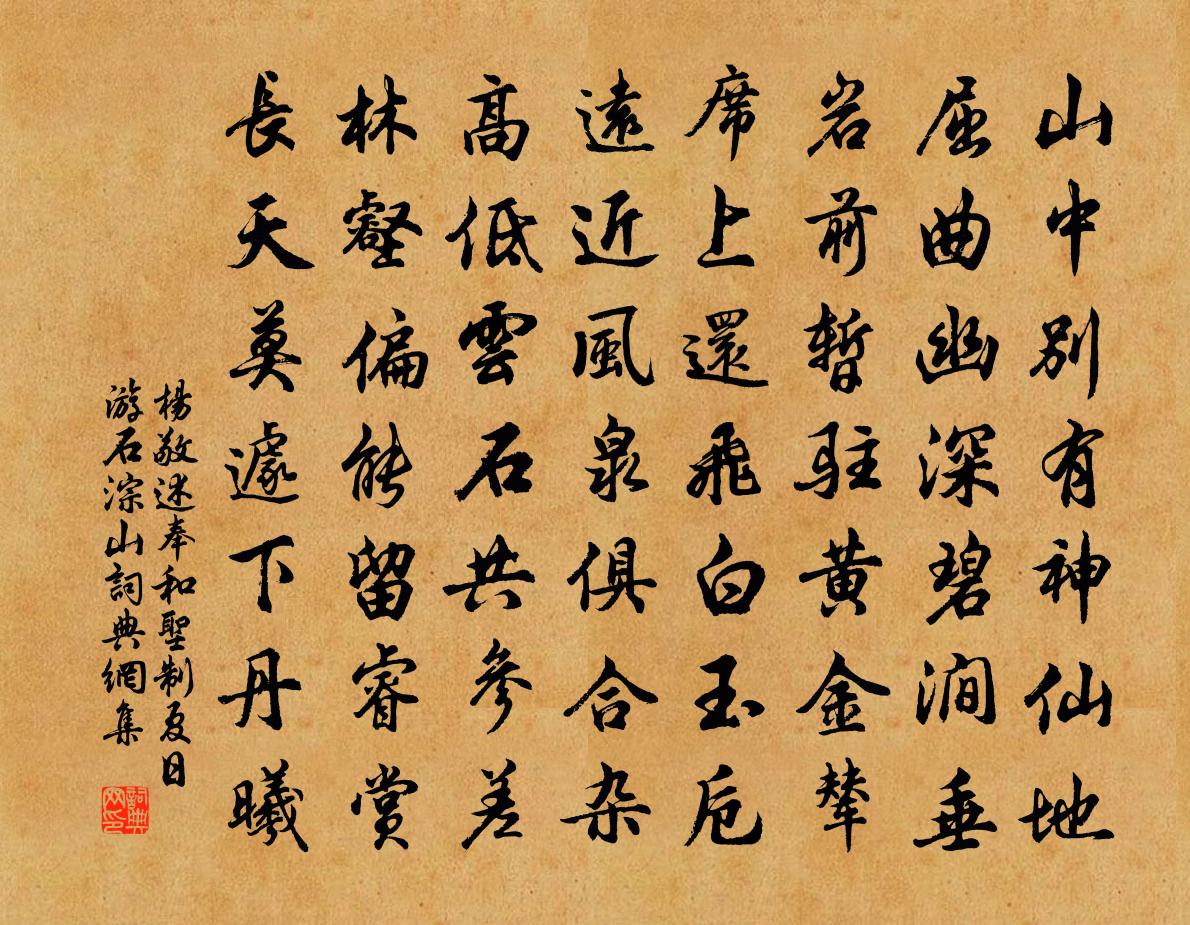 山中別有神仙地
屈曲幽深碧澗垂
岩前暫駐黃金輦
席上還飛白玉卮
遠近風泉俱合杂
高低雲石共參差
林壑偏能留睿賞
長天莫遽下丹曦
楊敬述奉和聖制夏日
游石淙山詞典網集
詞典
网印